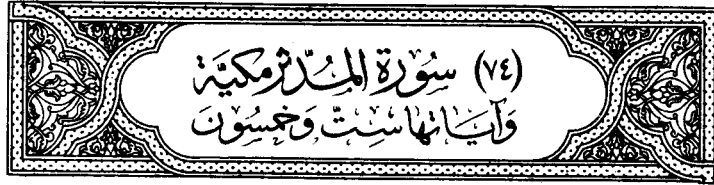 (٧٤) سُورَة المدَّثر مَكيَّة
وَآيَاتهَا سِتّ وَخَمسُونَ